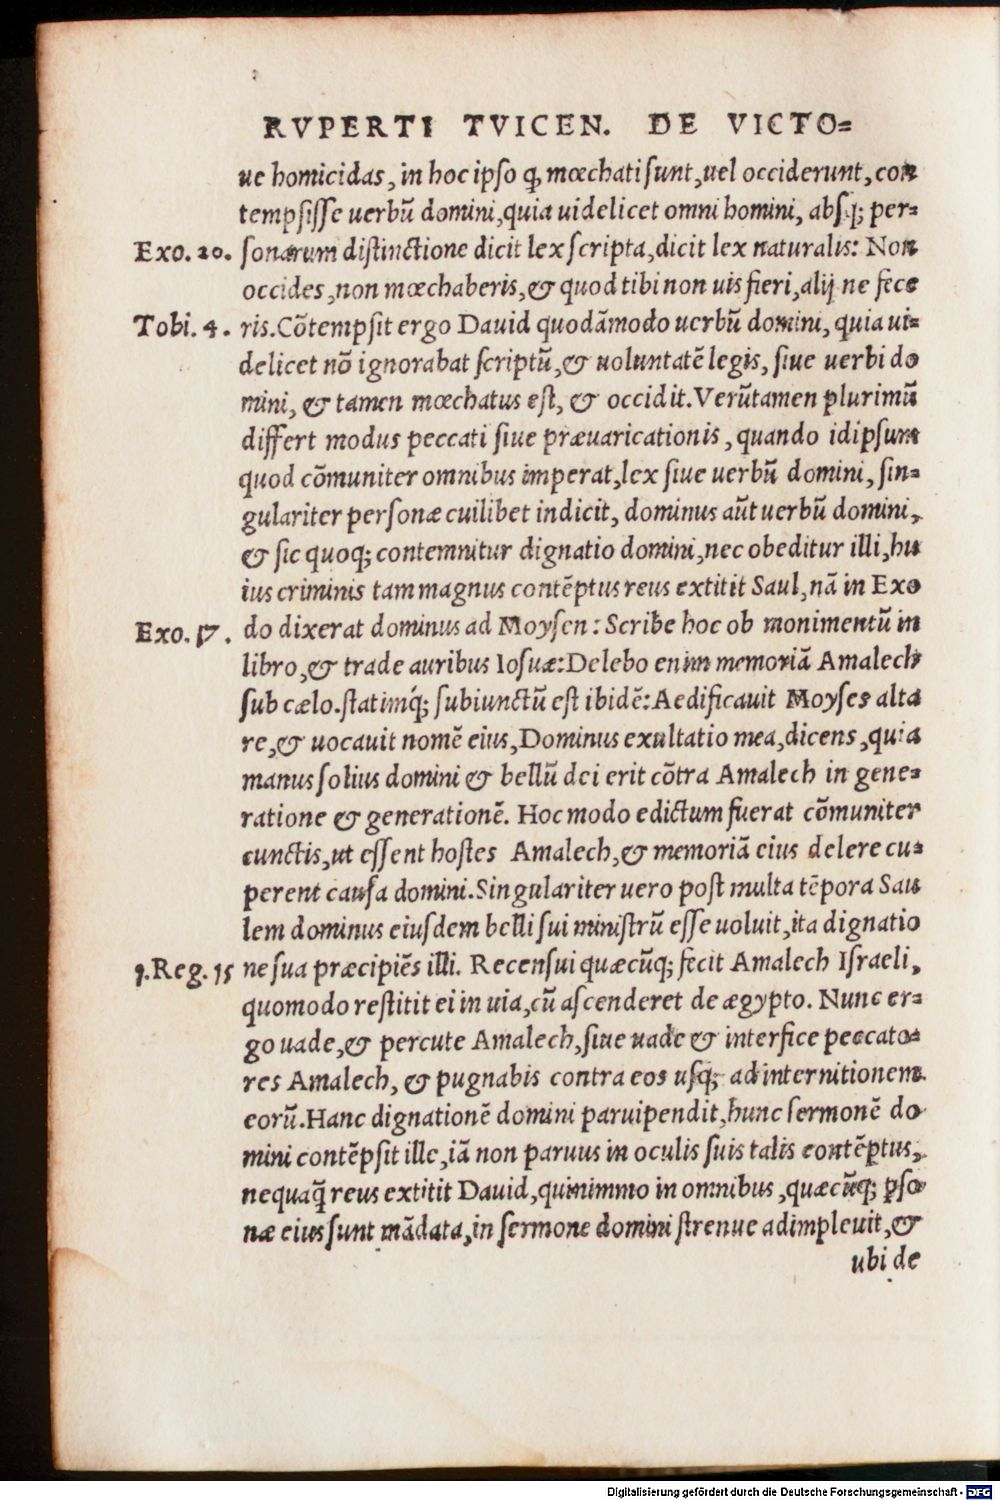 RVPERTI TVICEN. DE VICTO=
ue homicidas, in hoc ipso ꝙ mœchati sunt, uel occiderunt, con
tempsisse uerbũ domini, quia uidelicet omni homini, absq; per=
Exo. 20. sonarum distinctione dicit lex scripta, dicit lex naturalis: Non
occides, non mœchaberis, & quod tibi non uis fieri, alij ne fece
Tobi. 4. ris. Cõtempsit ergo Dauid quodãmodo uerbũ domini, quia ui=
delicet nõ ignorabat scriptũ, & uoluntatẽ legis, siue uerbi do
mini, & tamen mœchatus est, & occidit. Verũtamen plurimũ
differt modus peccati siue præuaricationis, quando idipsum
quod cõmuniter omnibus imperat, lex siue uerbũ domini, sin=
gulariter personæ cuilibet indicit, dominus aũt uerbũ domini,
& sic quoq; contemnitur dignatio domini, nec obeditur illi, hu
ius criminis tam magnus contẽptus reus extitit Saul, nã in Exo
Exo. 17. do dixerat dominus ad Moysen: Scribe hoc ob monimentũ in
libro, & trade auribus Iosuæ: Delebo enim memoriã Amalech
sub cælo. statimq́; subiunctũ est ibidẽ: Aedificauit Moyses alta
re, & uocauit nomẽ eius, Dominus exultatio mea, dicens, quia
manus solius domini & bellũ dei erit cõtra Amalech in gene=
ratione & generationẽ. Hoc modo edictum fuerat cõmuniter
cunctis, ut essent hostes Amalech, & memoriã eius delere cu=
perent causa domini. Singulariter uero post multa tẽpora Sau
lem dominus eiusdem belli sui ministrũ esse uoluit, ita dignatio
1. Reg. 15 ne sua præcipiẽs illi. Recensui quæcũq; fecit Amalech Israeli,
quomodo restitit ei in uia, cũ ascenderet de ægypto. Nunc er=
go uade, & percute Amalech, siue uade & interfice peccato=
res Amalech, & pugnabis contra eos usq; ad internitionem
eorũ. Hanc dignationẽ domini paruipendit, hunc sermonẽ do
mini contẽpsit ille, iã non paruus in oculis suis talis contẽptus,
nequaq̃ reus extitit Dauid, quinimmo in omnibus, quæcũq; ꝑso
næ eius sunt mãdata, in sermone domini strenue adimpleuit, &
ubi de
Digitalisierung gefördert durch die Deutsche Forschungsgemeinschaft - DFG